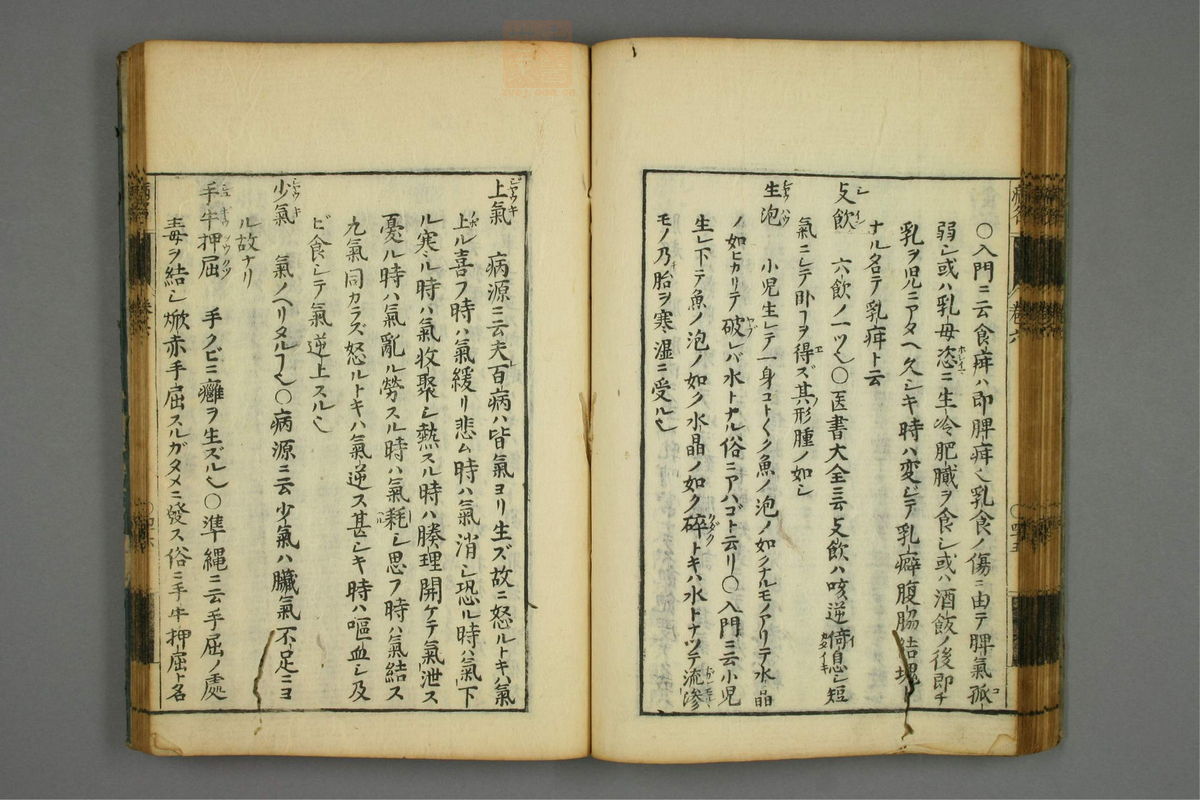 〇入門ニ云食疳ハ即脾疳乀乳食ノ傷ニ由テ脾氣孤
弱シ或ハ乳母恣ニ生冷肥膩ヲ食シ或ハ酒飯ノ後即チ
乳ヲ児ニアタヘ久シキ時ハ変ジテ乳癖腹脇結塊ト
ナル名テ乳疳ト云
支飲 六飲ノ一ツ乀〇医書大全ニ云支飲ハ咳逆倚息シ短
氣ニシテ卧フヿヲ得ズ其形腫ノ如シ
生泡 小児生レテ一身コトゴトク魚ノ泡ノ如クナルモノアリテ水晶
ノ如ヒカリテ破レバ水トナル俗ニアハゴト云リ〇入門ニ云小児
生レ下テ魚ノ泡ノ如ク水晶ノ如ク碎トキハ水トナツテ流滲
モノ乃チ胎ヲ寒湿ニ受ル乀
卷六
〇四十五
上氣 病源ニ云夫レ百病ハ皆氣ヨリ生ズ故ニ怒ルトキハ氣
上ル喜フ時ハ氣緩リ悲ム時ハ氣消シ恐ル時ハ氣下
ル寒ル時ハ氣收聚シ熱スル時ハ腠理開ケテ氣泄ス
憂ル時ハ氣亂ル勞スル時ハ氣耗シ思フ時ハ氣結ス
九氣同カラズ怒ルトキハ氣逆ス甚シキ時ハ嘔血シ及
ビ食シテ氣逆上スル乀
少氣 氣ノヘリタルヿ乀〇病源ニ云少氣ハ臓氣不足ニヨ
ル故ナリ
手牛押屈 手クビニ癰ヲ生ズル乀〇準縄ニ云手屈ノ處
毒ヲ結シ焮赤手屈スルガタメニ發ス俗ニ手牛押屈ト名